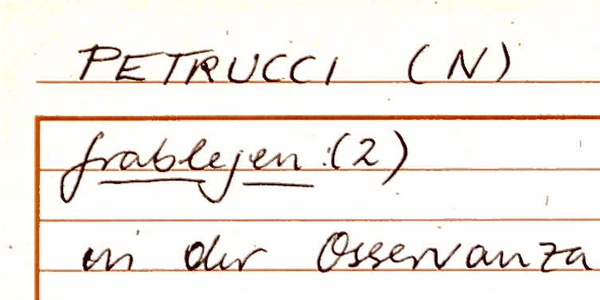 PETRUCCI (N)
Grablegen: (2)
in der Osservanza